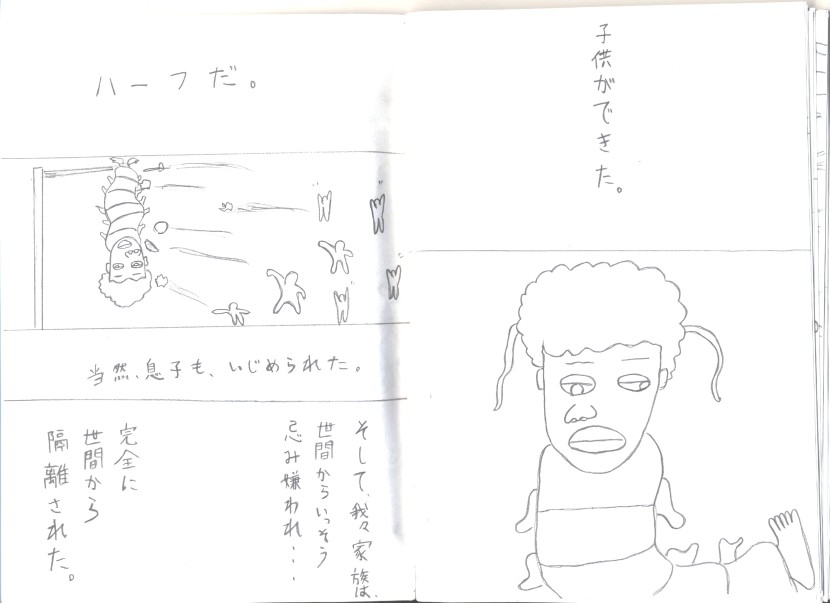 子供ができた。
ハーフだ。
当然、息子も、いじめられた。
そして、我々家族は、
世間からいっそう
忌み嫌われ・・・
完全に
世間から
隔離された。